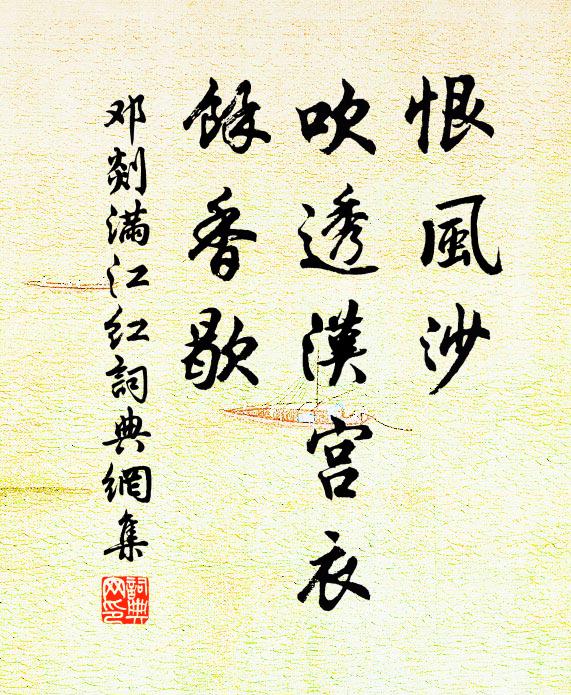 恨風沙
吹透漢宮衣
餘香歇
邓剡满江红詞典網集
詞典網印